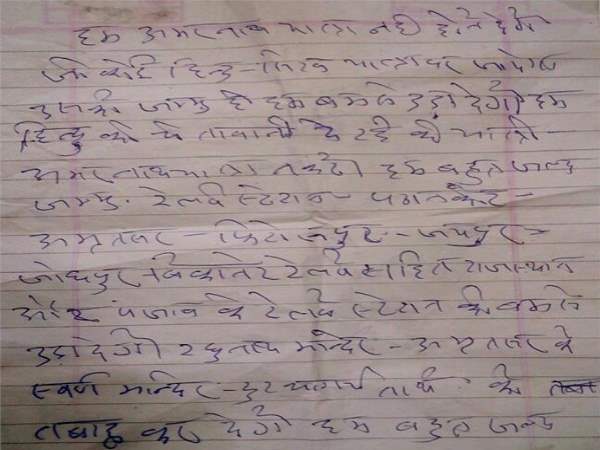 हम अमरनाथ यात्रा नही होने देगे
जो कोई हिन्दु-सिख यात्रा पर जायेगा
उसको जम्मू में हम बम से उडा देगे हम
हिन्दु को चेतावनी दे रहे की यात्री-
अमरनाथ यात्रा न करे। हम बहुत जल्द
जम्मू. रेलवे स्टेशन - पठानकोट -
अमृतसर - फिरोजपुर - जयपुर -
जोधपुर - बिकानेर रेलवे सहित राजस्थान
और पंजाब के रेलवे स्टेशन को बम से
उडा देगे। रघुनाथ मन्दिर - अमृतसर के
स्वर्ण मन्दिर - दुरग्याणा तीर्थ को
तबाह कर देगे हम बहुत जल्द